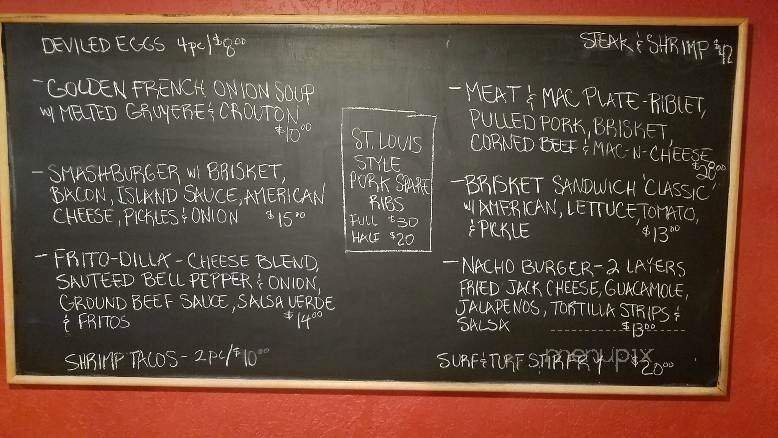 DEVILED EGGS 4pc/$8.00
- GOLDEN FRENCH ONION SOUP
W/ MELTED GRUYERE & CROUTON
$10.00
- SMASHBURGER W/ BRISKET,
BACON, ISLAND SAUCE, AMERICAN
CHEESE, PICKLES & ONION $15.00
- FRITO-DILLA - CHEESE BLEND,
SAUTEED BELL PEPPER & ONION,
GROUND BEEF SAUCE, SALSA VERDE
& FRITOS $14.00
SHRIMP TACOS - 2pc/$10.00
ST. LOUIS
STYLE
PORK SPARE
RIBS
FULL $30
HALF $20
STEAK & SHRIMP $42
- MEAT & MAC PLATE - RIBLET,
PULLED PORK, BRISKET,
CORNED BEEF & MAC-N-CHEESE
$28.00
- BRISKET SANDWICH 'CLASSIC'
W/ AMERICAN, LETTUCE, TOMATO,
& PICKLE $13.00
- NACHO BURGER - 2 LAYERS
FRIED JACK CHEESE, GUACAMOLE,
JALAPENOS, TORTILLA STRIPS &
SALSA $13.00
SURF & TURF STIR FRY $20.00
menupix